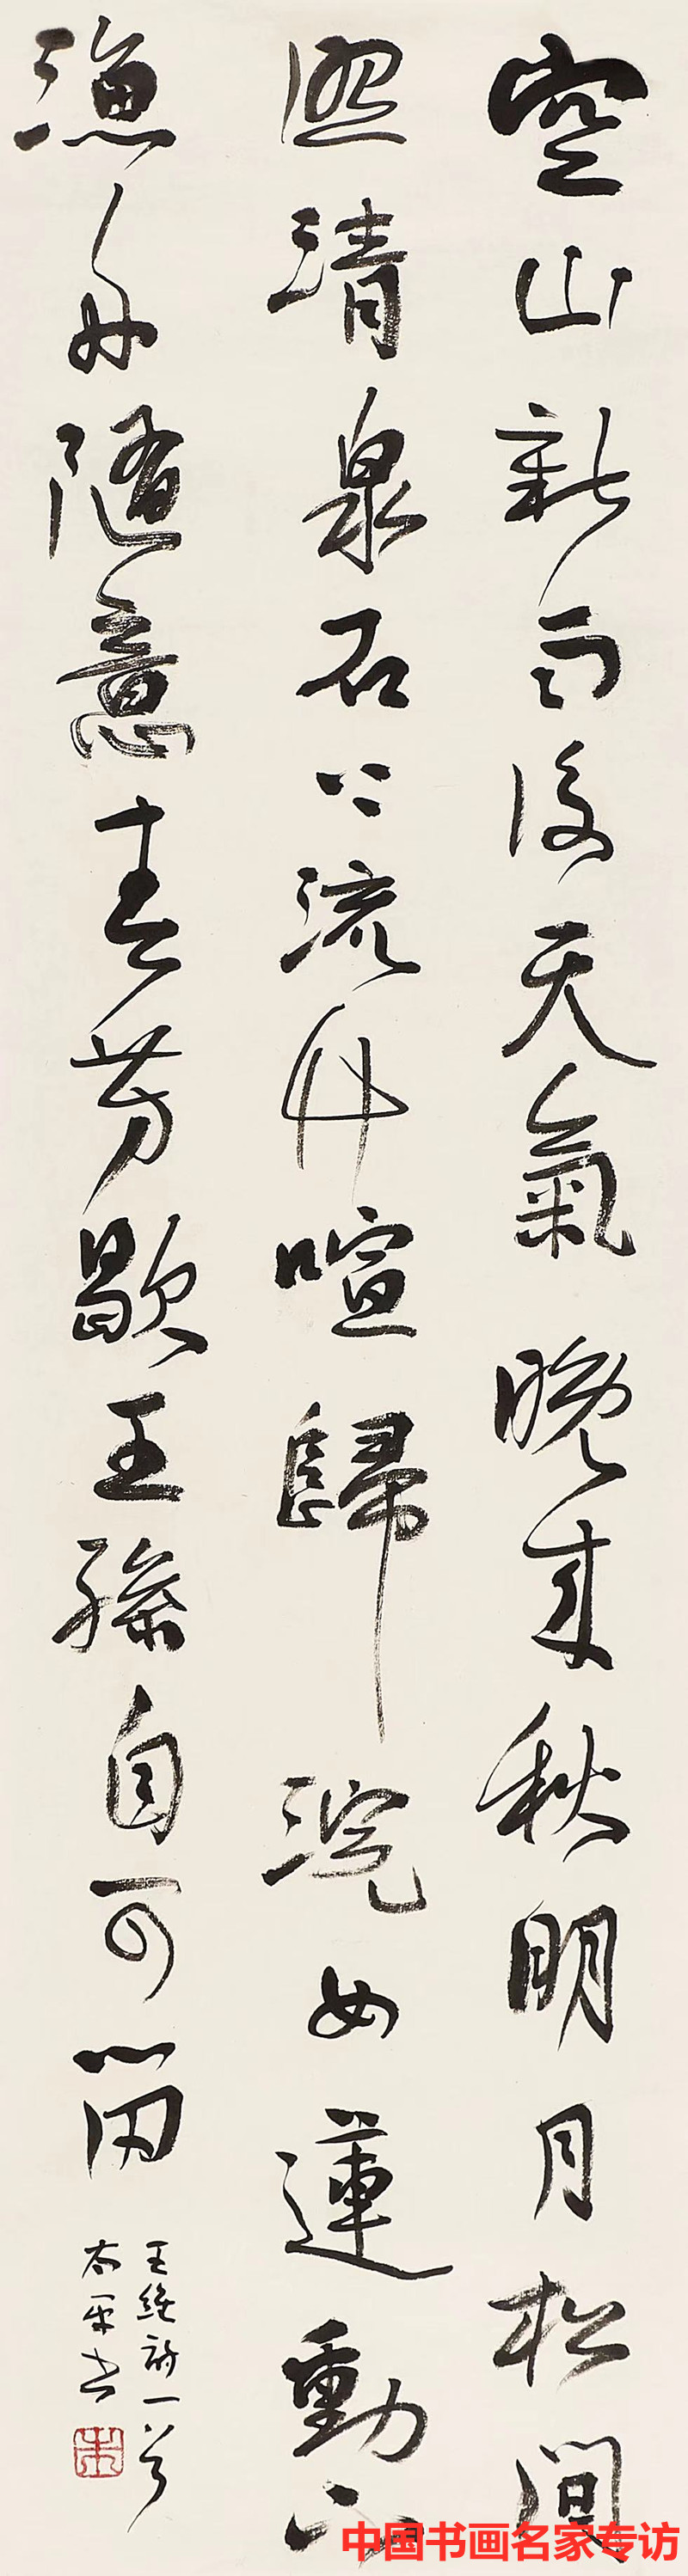 空山新雨後天氣晚來秋明月松間
照清泉石上流竹喧歸浣女蓮動下
漁舟隨意春芳歇王孫自可留
王維詩一首
太平书
朱
中国书画名家专访